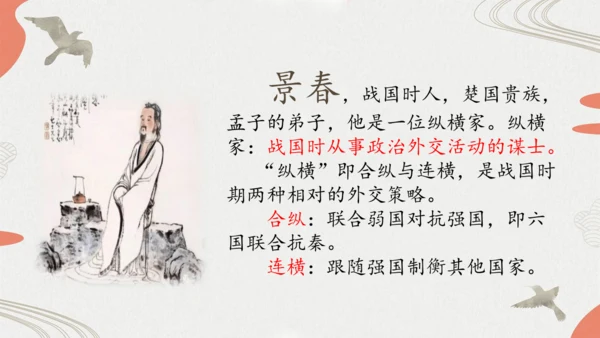 景春，战国时人，楚国贵族，
孟子的弟子，他是一位纵横家。纵横
家：战国时从事政治外交活动的谋士。
“纵横”即合纵与连横，是战国时
期两种相对的外交策略。
合纵：联合弱国对抗强国，即六
国联合抗秦。
连横：跟随强国制衡其他国家。